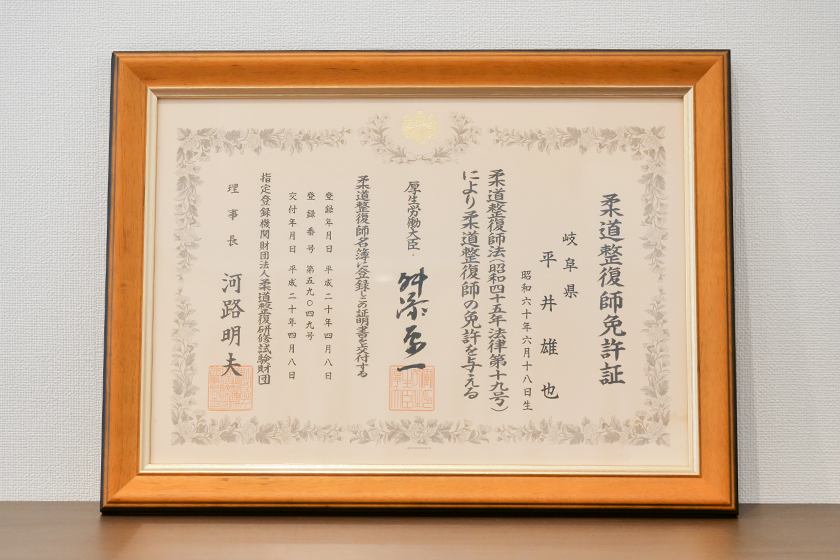 柔道整復師免許証
岐阜県
平井雄也
昭和六十年六月十八日生
柔道整復師法(昭和四十五年法律第十九号)
により柔道整復師の免許を与える
厚生労働大臣
舛添要一
柔道整復師名簿に登録しこの証明書を交付する
登録年月日 平成二十年四月八日
登録番号 第五九〇四九号
交付年月日 平成二十年四月八日
指定登録機関財団法人柔道整復研修試験財団
理事長 河路明夫